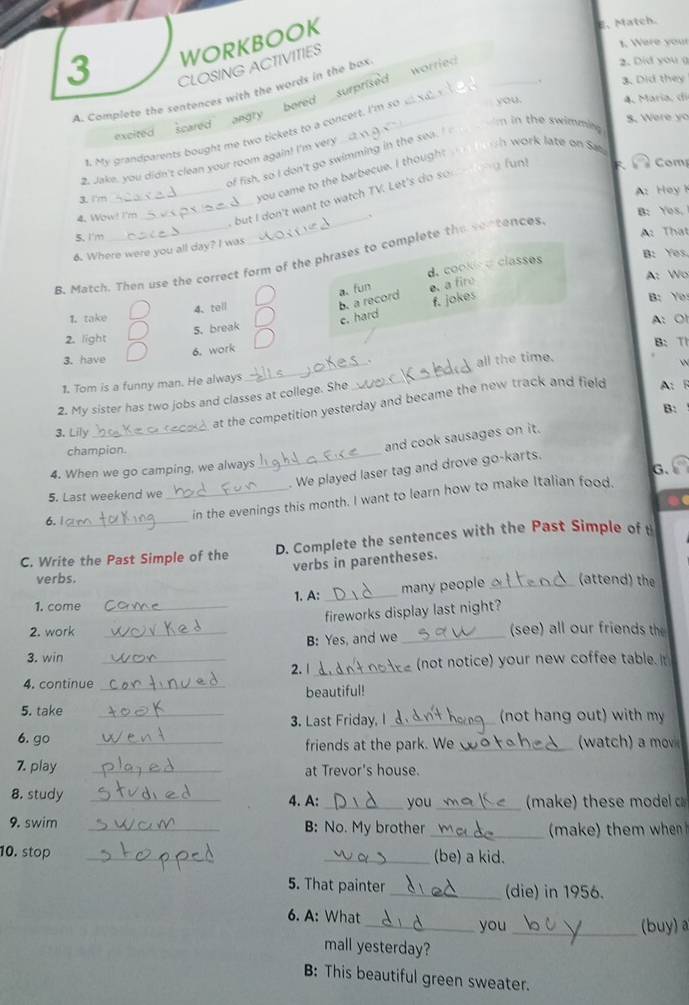 3
WORKBOOK
CLOSING ACTIVITIES
A. Complete the sentences with the words in the box.
excited scared angry bored surprised worried
1. My grandparents bought me two tickets to a concert. I'm so excited.
2. Jake, you didn't clean your room again! I'm very ang you.
3. I'm scared of fish, so I don't go swimming in the sea. in the swimming
4. Wow! I'm surprised you came to the barbecue. I thought work late on
5. I'm , but I don't want to watch TV. Let's do fun!
6. Where were you all day? I was worried.
B. Match. Then use the correct form of the phrases to complete the sentences.
1. take
2. light
3. have
4. tell
5. break
6. work
a. fun
b. a record
c. hard
d. classes
e. a fire
f. jokes
1. Tom is a funny man. He always tells jokes.
2. My sister has two jobs and classes at college. She all the time.
3. Lily at the competition yesterday and became the new track and field
champion.
4. When we go camping, we always light a fire and cook sausages on it.
5. Last weekend we had fun. We played laser tag and drove go-karts.
6. I am taking in the evenings this month. I want to learn how to make Italian food.
C. Write the Past Simple of the
verbs.
1. come came
2. work worked
3. win won
4. continue continued
5. take took
6. go went
7. play played
8. study studied
9. swim swam
10. stop stopped
D. Complete the sentences with the Past Simple of
verbs in parentheses.
1. A: Did many people attend (attend) the
fireworks display last night?
B: Yes, and we saw (see) all our friends the
2. I didn't (not notice) your new coffee table. It
beautiful!
3. Last Friday, I didn't (not hang out) with my
friends at the park. We watched (watch) a
at Trevor's house.
4. A: Did you make (make) these model
B: No. My brother made (make) them when
was (be) a kid.
5. That painter died (die) in 1956.
6. A: What did you buy (buy) a
mall yesterday?
B: This beautiful green sweater.
E. Match.
1. Were your
2. Did you
3. Did they
4. Maria,
5. Were
F.
A: Hey
B: Yes,
A: That
B: Yes,
A:
B:
A:
B:
A:
B:
G.